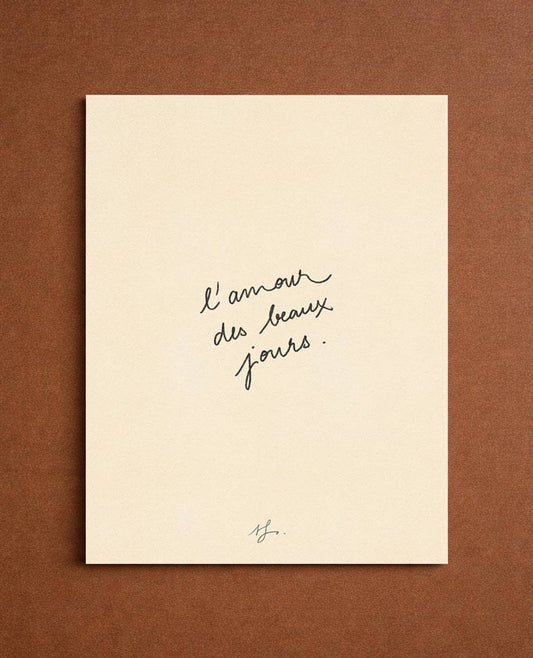 l'amour
des beaux
jours.